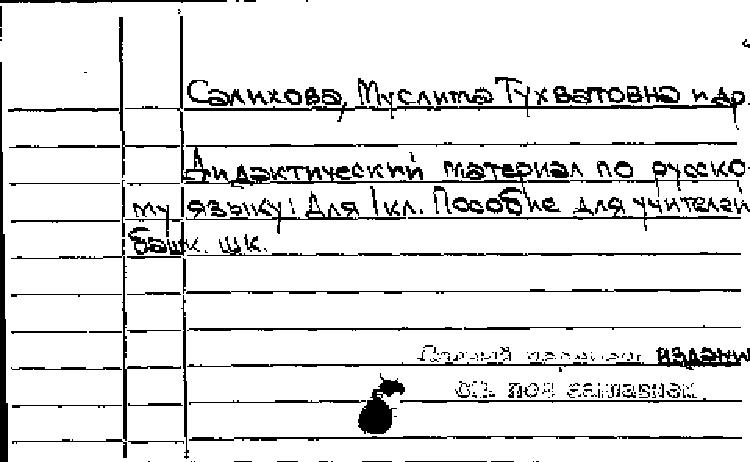 Салихова, Муслима Тухватовна и др.
Дидактический материал по русско-
му языку: Для 1 кл. Пособие для учителей
башк. шк.
издани
см. под заглавием